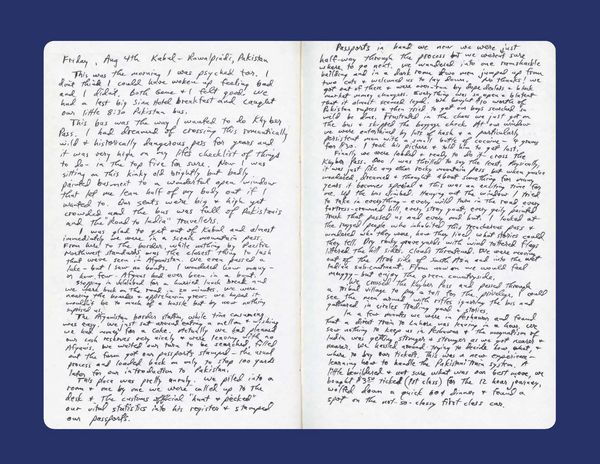 Friday, Aug 4th Kabul - Rawalpindi, Pakistan
This was the morning I was psyched for. I
don't think I could have woken up feeling bad
and I didn't. Both Gene & I felt good. We
had a last big Sina Hotel breakfast and caught
our little 8:30 Pakistan bus.
This bus was the way I wanted to do Khyber
Pass. I had dreamed of crossing this romantically
wild & historically dangerous pass for years and
it was very high on my life's checklist of things
to do - in the top five for sure. Now I was
sitting on this kinky old brightly but badly
painted bus next to a wonderful open window
that let me lean half of my body out if I
wanted to. Our seats were big & high yet
crowded and the bus was full of Pakistanis
and "the Road to India" travellers.
I was glad to get out of Kabul and almost
immediately we were in a scenic mountain pass.
From Kabul to the border, while nothing by Pacific
Northwest standards was the closest thing to lush
that we've seen in Afghanistan. We even passed a
lake - but I saw no boats. I wondered how many -
or how few - Afgans had even been on a boat.
Stopping in Jalalabad for a hurried lunch break and
we were back on the road in 20 minutes. We were
nearing the border &
wouldn't be too much of a hassle but by now nothing
suprised us.
The Afghanistan border station, while time consuming
was easy. We just sat around eating a melon & wishing
we had money for a coke. Actually we had planned
our cash reserves very nicely & were leaving with no
Afganis. We waited our turn to be searched, filled
out the form got our passports stamped - the usual
process and loaded back on only to stop 100 yards
later for our introduction to Pakistan.
This place was pretty unruly. We piled into a
room & one by one we were called up to the
desk & the customs official "hunt & pecked"
our vital statistics into his register & stamped
our passports.
Passports in hand we now we were just
half-way through the process but we weren't sure
where to go next. We wandered into one remarkable
building and in a dark room two men jumped up from
two cots & welcomed us to lay down. No thanks! We
got out of there & were over-run by dope dealers & black
market money changers. Everything was so open & blatant
that it almost seemed legal. We bought $10 worth of
Pakistan rupees & then tried to get our bags searched so
we'd be done. Frustrated in the chaos we just got on
the bus & skipped the baggage check. On our window
we were entertained by lots of hash & a particularly
persistent man with a small bottle of cocaine - 4 grams
for $30. I took his picture & told him to get lost.
Finally we were loaded & ready to do it - cross the
Khyber Pass. Boo! I was thrilled to say the least. Physically,
it was just like any other rocky mountain pass but when you've
wanted, dreamed & thought about something for many
years it becomes special & this was an exciting time for
me. Up the bus climbed. Hanging out the window I tried
to take in everything - every wild turn in the road, every
fortress-crowned hill, every stray goat, every gaily painted
truck that passed us and every mud hut. I looked at
the rugged people who inhabited this treacherous pass &
wondered who they were, how they lived, what stories could
they tell. Dry rocky grave yards with wind tattered flags
littered the hill sides, clouds threatened. We were moving
out of the Arab side of South Asia and into the moist
Indian sub-continent. From now on we would feel
muggy - but enjoy the green countryside.
We crossed the Khyber Pass and passed through
a tribal village to pay a toll for the privilege. I could
see the men around with rifles ignoring the bus and
gathered in circles trading good stories.
In a few minutes we were in Peshawar and found
that a direct train to Lahore was leaving in a hour. We
saw nothing to keep us in Peshawar & the magnetism of
India was getting stronger & stronger as we got nearer &
nearer. We hassled around trying to decide how what &
where to buy our tickets. This was a new experience -
learning how to handle the Pakistani train system. A
little bewildered & not sure what was our best move, we
bought $3.50 tickets (1st class) for the 12 hour journey,
wolfed down a quick 60¢ dinner & found a
spot on the not-so-classy first class car.